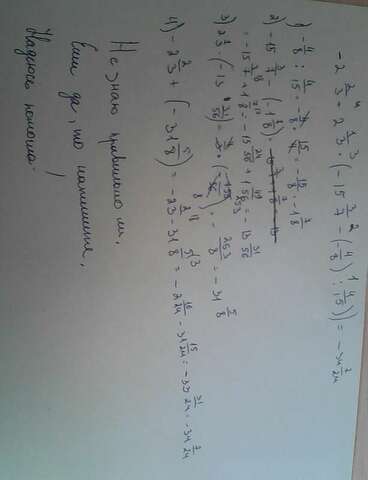 -2 2/3 + 2 1/3 · (-15 3/7 - (-4/8) : 4/15)) = -34 7/24
1) -4/8 : 4/15 = -4/8 · 15/4 = -15/8 = -1 7/8
2) -15 3/7 - (-1 7/8)
= -15 3/7 + 1 7/8 = -15 24/56 + 1 49/56 = -13 31/56
3) 2 1/3 · (-13 31/56) = 7/3 · (-759/56) = -253/8 = -31 5/8
4) -2 2/3 + (-31 5/8) = -2 2/3 - 31 5/8 = -2 16/24 - 31 15/24 = -33 31/24 = -34 7/24
Не знаю правильно ли,
Если да, то напишите,
Надеюсь помогла.